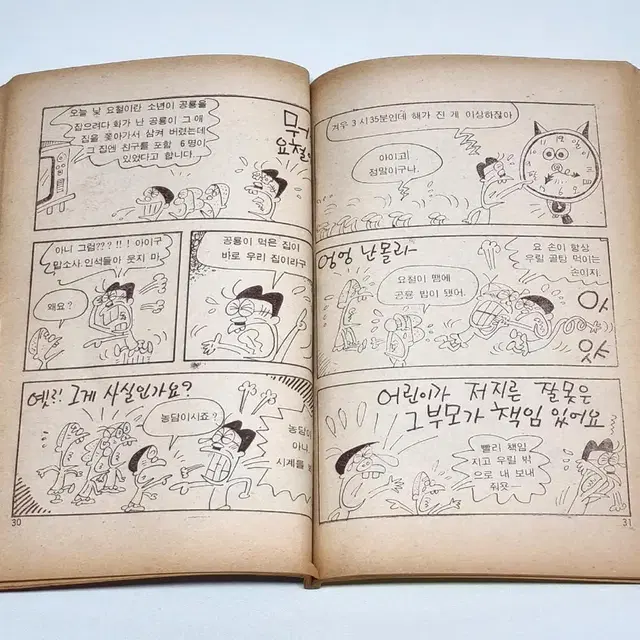 오늘 낮 요절이란 소년이 공룡을
잡으려다 화가 난 공룡이 그 애
집을 쫓아가서 삼켜 버렸는데
그 집엔 친구를 포함 6명이
있었다고 합니다.
아니 그럼???!!! 아이구
맙소사. 인석들아 웃지 마.
왜요?
공룡이 먹은 집이
바로 우리 집이라구
옛!! 그게 사실인가요?
농담이시죠?
농담이
아니
시계를
30
겨우 3시35분인데 해가 진 게 이상하잖아
아이고!
정말이구나.
엉엉 난몰라
요절이 땜에
공룡 밥이 됐어.
요 손이 항상
우릴 골탕 먹이는
손이지.
아
얏
어린이가 저지른 잘못은
그부모가 책임 있어요
빨리 책임
지고 우릴 밖
으로 내 보내
줘욧
31